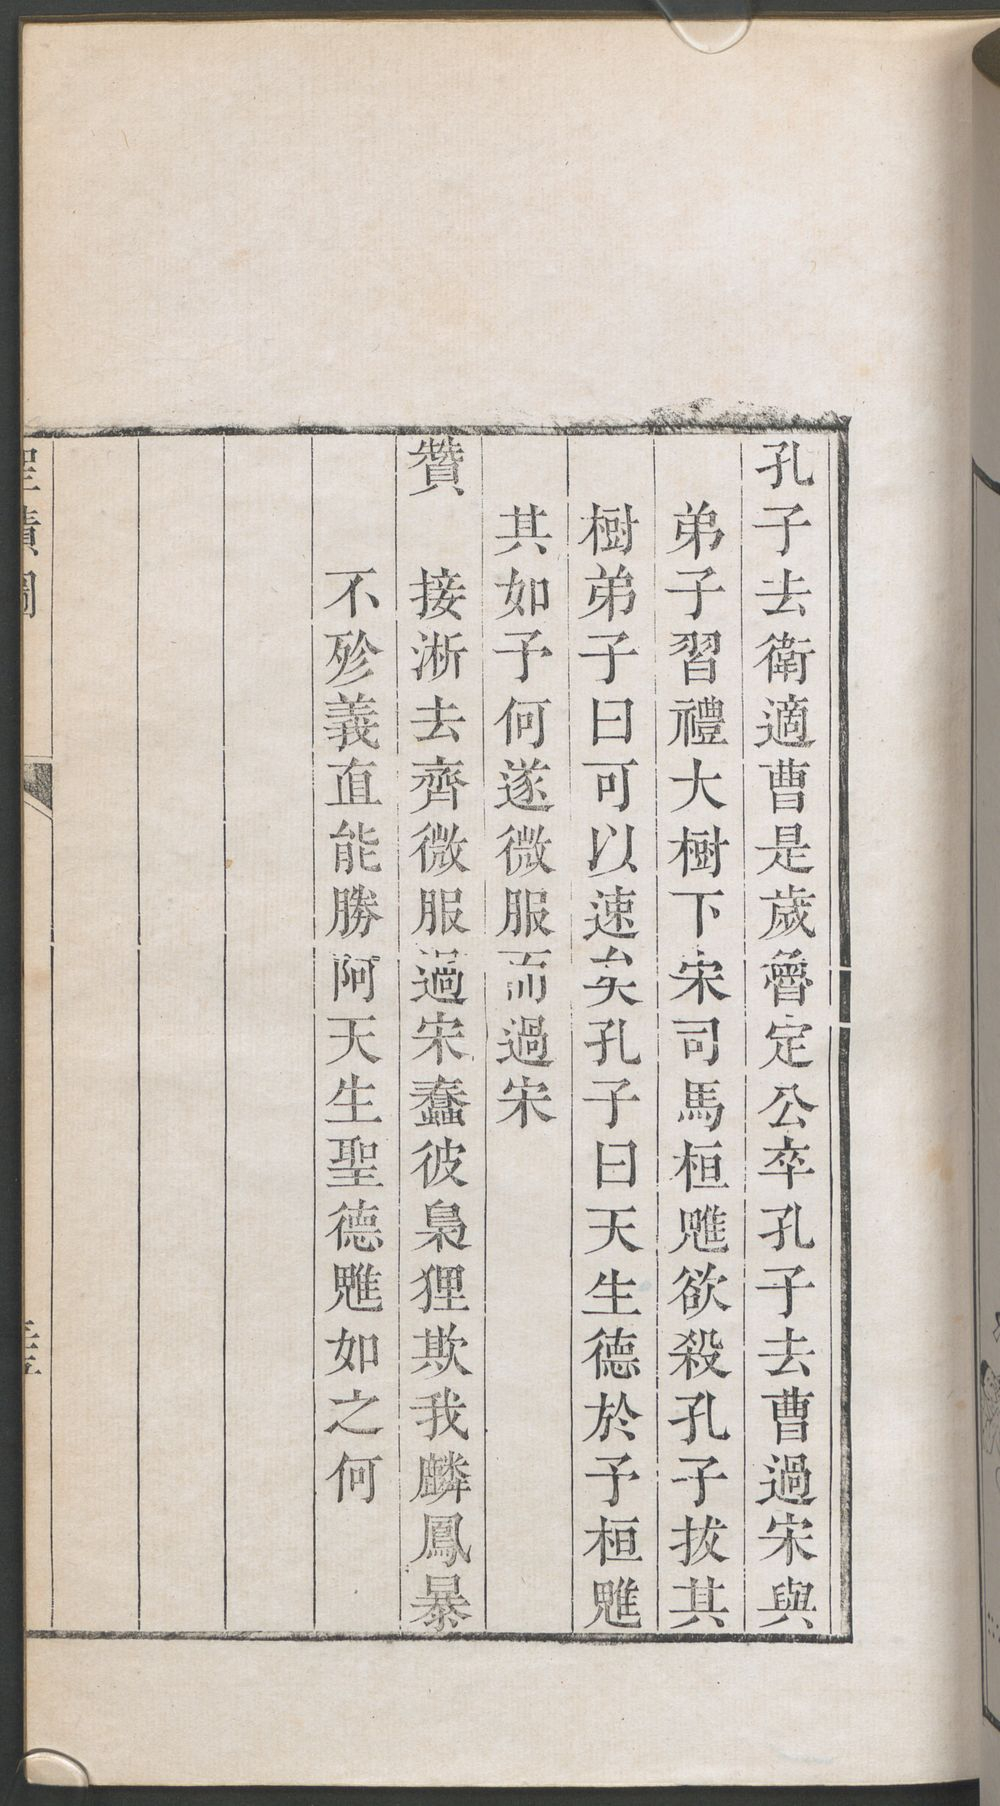 孔子去衛適曹是歲魯定公卒孔子去曹過宋與
弟子習禮大樹下宋司馬桓魋欲殺孔子拔其
樹弟子曰可以速矣孔子曰天生德於予桓魋
其如予何遂微服而過宋
贊　接淅去齊微服過宋蠢彼梟狸欺我麟鳳暴
不殄義直能勝阿天生聖德魋如之何
聖蹟圖